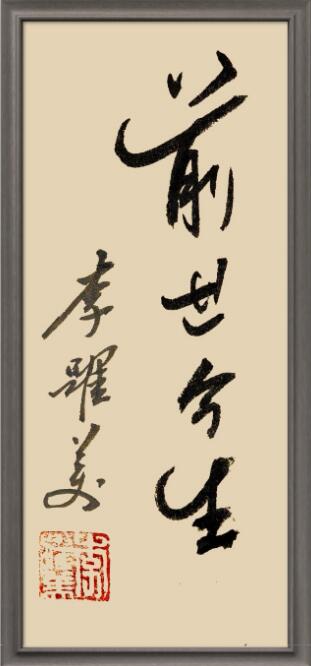 前世今生
李躍美